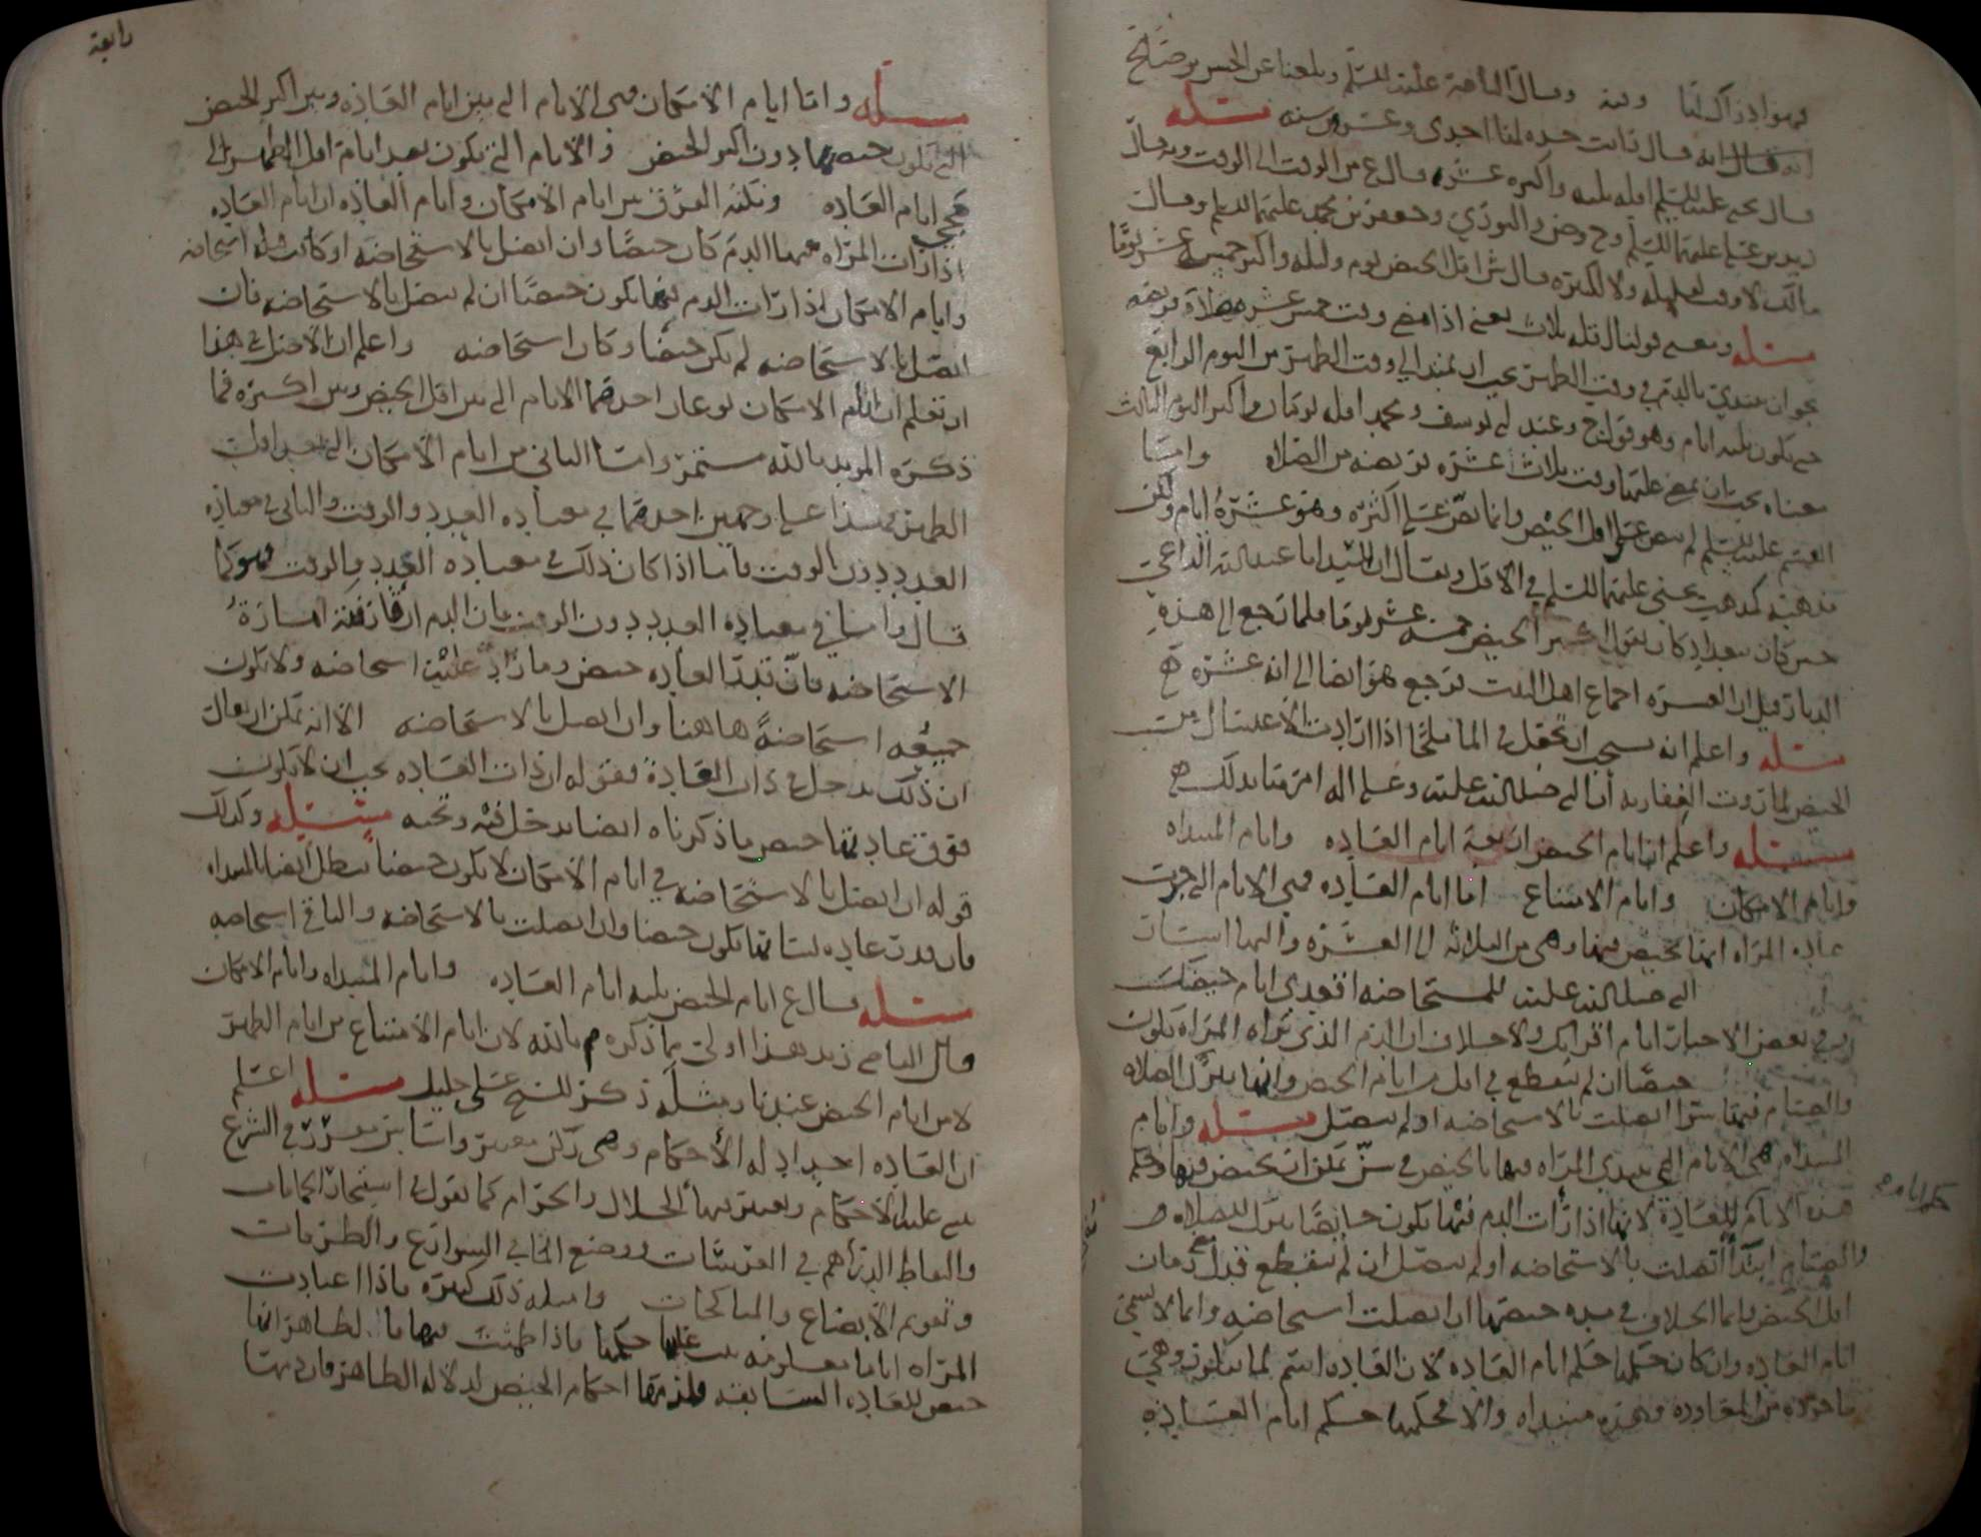 فهو ادراك لنا وقال الناصر عليه السلم وبلغنا عن الحسن بن صالح
انه قال رايت جده لها احدى وعشرون سنه مسئله
قال يحيى عليه السلم اقله ثلث واكثره عشره قال ع من الوقت الى الوقت وبه قال
زيد بن علي عليهما السلم وح وص والثوري وجعفر بن محمد عليهما السلم وقال
مالك لا وقت لقليله ولا لكثيره وقال ش اقل الحيض يوم وليله واكثره خمسه عشر يوما
مسئله ومعنى قولنا اقله ثلاث يعني اذا مضى وقت خمس عشره صلاة فريضه
نحو ان تبتدي بالدم في وقت الظهر يجب ان يمتد الى وقت الظهر من اليوم الرابع
حتى يكون ثلثه ايام وهو قول ح وعند ابي يوسف ومحمد اقله يومان واكثر اليوم الثالث
معناه يجب ان يمضي عليها وقت ثلاث عشره فريضه من الصلاه واما
القسم عليه السلم لم ينص على اقل الحيض وانما نص على اكثره وهو عشرة ايام ولكن
مذهبه كمذهب يحيى عليهما السلم في الاقل ويقال ان السيد ابا عبدالله الداعي
حين كان ببغداد كان يقول اكثر الحيض خمسه عشر يوما فلما رجع الى هذه
الديار قيل ان العشره اجماع اهل البيت فرجع هو ايضا الى انه عشره
مسئله واعلم انه يستحب ان تجعل في الماء ملحا اذا ارادت الاغتسال من
الحيض لما روت الغفاريه ان النبي صلى الله عليه وعلى اله امرها بذلك
مسئله واعلم ان ايام الحيض اربعه ايام العاده وايام المبتداه
وايام الامكان وايام الامتناع اما ايام العاده فهي الايام التي جرت
عاده المراه انها تحيض فيها وهي من الثلاثه الى العشره واليها اشار
النبي صلى الله عليه للمستحاضه اقعدي ايام حيضك
وفي بعض الاخبار ايام اقرائك ولا خلاف ان الدم الذي تراه المراه يكون
حيضا ان لم ينقطع في اقل من ايام الحيض وانها تترك الصلاه
والصيام فيها سوا اتصلت بالاستحاضه او لم يتصل مسئله وايام
المبتداه هي الايام التي تبتدي المراه فيها بالحيض في سن يمكن ان تحيض فيها وحكم
هذه الايام للعاده لانها اذا رات الدم فيها تكون حايضا تترك الصلاه
والصيام ابتدا اتصلت بالاستحاضه او لم يتصل ان لم ينقطع قبل زمان
اقل الحيض وانما الخلاف في مده حيضها ان اتصلت استحاضه وانما لا يسمى
ايام العاده وان كان حكمها حكم ايام العاده لان العاده اسم لما يتكرر وهي
ماخوذه من المعاوده وهذه مبتداه والا فحكمها حكم ايام العاده
حكم ايام
رابعة
مسئله واما ايام الامكان فهي الايام التي بين ايام العاده وبين اكثر الحيض
التي تكون حيضها دون اكثر الحيض والايام التي تكون بعد ايام اقل الطهر الى
مجي ايام العاده ونكته الفرق بين ايام الامكان وايام العاده ان ايام العاده
اذا رات المراه فيها الدم كان حيضا وان اتصل بالاستحاضه او كانت قبله استحاضه
وايام الامكان اذا رات الدم فيها يكون حيضا ان لم يتصل بالاستحاضه فان
اتصل بالاستحاضه لم يكن حيضا وكان استحاضه واعلم ان الاصل في هذا
ان تعلم ان ايام الامكان نوعان احدهما الايام التي بين اقل الحيض وبين اكثره فما
ذكره المويد بالله مستمر واما الثاني من ايام الامكان التي بعد اقل
الطهر فهذا على وجهين احدهما في معتاده العدد والوقت والثاني في معتاده
العدد دون الوقت فاما اذا كان ذلك في معتاده العدد والوقت فهو كما
قال واما في معتاده العدد دون الوقت فان الدم ان قارنته امارة
الاستحاضه فان قدر العاده حيض وما زاد عليه استحاضه ولا يكون
جميعه استحاضةً هاهنا وان اتصل بالاستحاضه الا انه يمكن ان يقال
ان ذلك يدخل في ذات العادة فقوله ان ذات العاده يجب ان لا يكون
فوق عادتها حيض ما ذكرناه ايضا يدخل فيه وتحته مسئله وكذلك
قوله ان اتصل بالاستحاضه في ايام الامكان لا يكون حيضا يبطل ايضا بالمبتداه
فان قدر عاده نسائها يكون حيضا وان اتصلت بالاستحاضه والباقي استحاضه
مسئله قال ع ايام الحيض ثلثه ايام العاده وايام المبتداه وايام الامكان
قال القاضي زيد هذا اولى مما ذكره م بالله لان ايام الامتناع من ايام الطهر
لا من ايام الحيض عندنا ومثله ذكر الشيخ علي خليل مسئله اعلم
ان العاده احد ادله الاحكام وهي ركن معتبر واساس مقرر في الشرع
يبنى عليه الاحكام ويعتبر بها الحلال والحرام كما نقول في استيجار الحمامات
والتقاط الدراهم في العرسات ووضع الجنايز في الشوارع والطرقات
وتقويم الابضاع والمناكحات وامثله ذلك كثيره فاذا اعتادت
المراه اياما معلومه يبنى عليها حكمها فاذا طمثت فيها فالظاهر انها
حيض للعاده السابقه فلزمها احكام الحيض لدلاله الظاهر فان ديتها